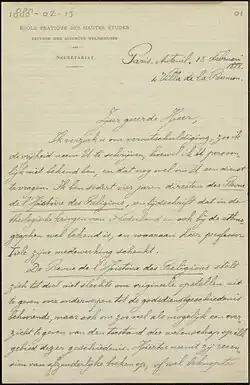 1888-02-15
91
ÉCOLE PRATIQUE DES HAUTES ÉTUDES
SECTION DES SCIENCES RELIGIEUSES
SECRÉTARIAT.
Paris, Auteuil, 15 Februari
4 Villa de la Réunion
Zeer geeerde Heer,
Ik verzoek u om verontschuldiging, zoo ik
de vrijheid neem U te schrijven, hoewel ik U persoon-
lijk niet bekend ben, en dat nog wel om U een dienst
te vragen. Ik ben sedert vier jaren directeur der Revue
de l'Histoire des Religions, een tijdschrift dat in de
theologische kringen van Nederland en ook bij de ethno-
graphen wel bekend is, en waaraan Uw professor
Tiele zijne medewerking schenkt.
De Revue de l'Histoire des Religions stelt
zich tot doel niet slechts om origineele opstellen uit
te geven over onderwerpen tot de godsdienstgeschiedenis
behoorende, maar ook om zoo veel als mogelijk een over-
zicht te geven van den toestand der wetenschap op elk
gebied dezer geschiedenis. Hiertoe neemt zij recen-
sies van afzonderlijke boeken op, of wel beknopte